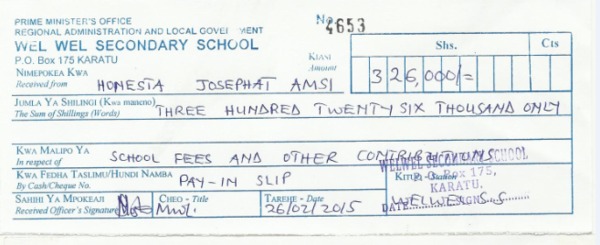 PRIME MINISTER'S OFFICE
REGIONAL ADMINISTRATION AND LOCAL GOVERNMENT
No. 4653
WEL WEL SECONDARY SCHOOL
P.O. Box 175 KARATU
KIASI
Amount
Shs. Cts
326,000/=
NIMEPOKEA KWA
Received from HONESTA JOSEPHAT AMSI
JUMLA YA SHILINGI (Kwa maneno)
The Sum of Shillings (Words) THREE HUNDRED TWENTY SIX THOUSAND ONLY
KWA MALIPO YA
In respect of SCHOOL FEES AND OTHER CONTRIBUTIONS
WELWEL SECONDARY SCHOOL
P.O. Box 175,
KARATU.
DATE SIGN
KWA FEDHA TASLIMU/HUNDI NAMBA
By Cash/Cheque No. PAY-IN SLIP
SAHIHI YA MPOKEAJI
Received Officer's Signature
CHEO - Title
TAREHE - Date
26/02/2015
WELWEL S.S